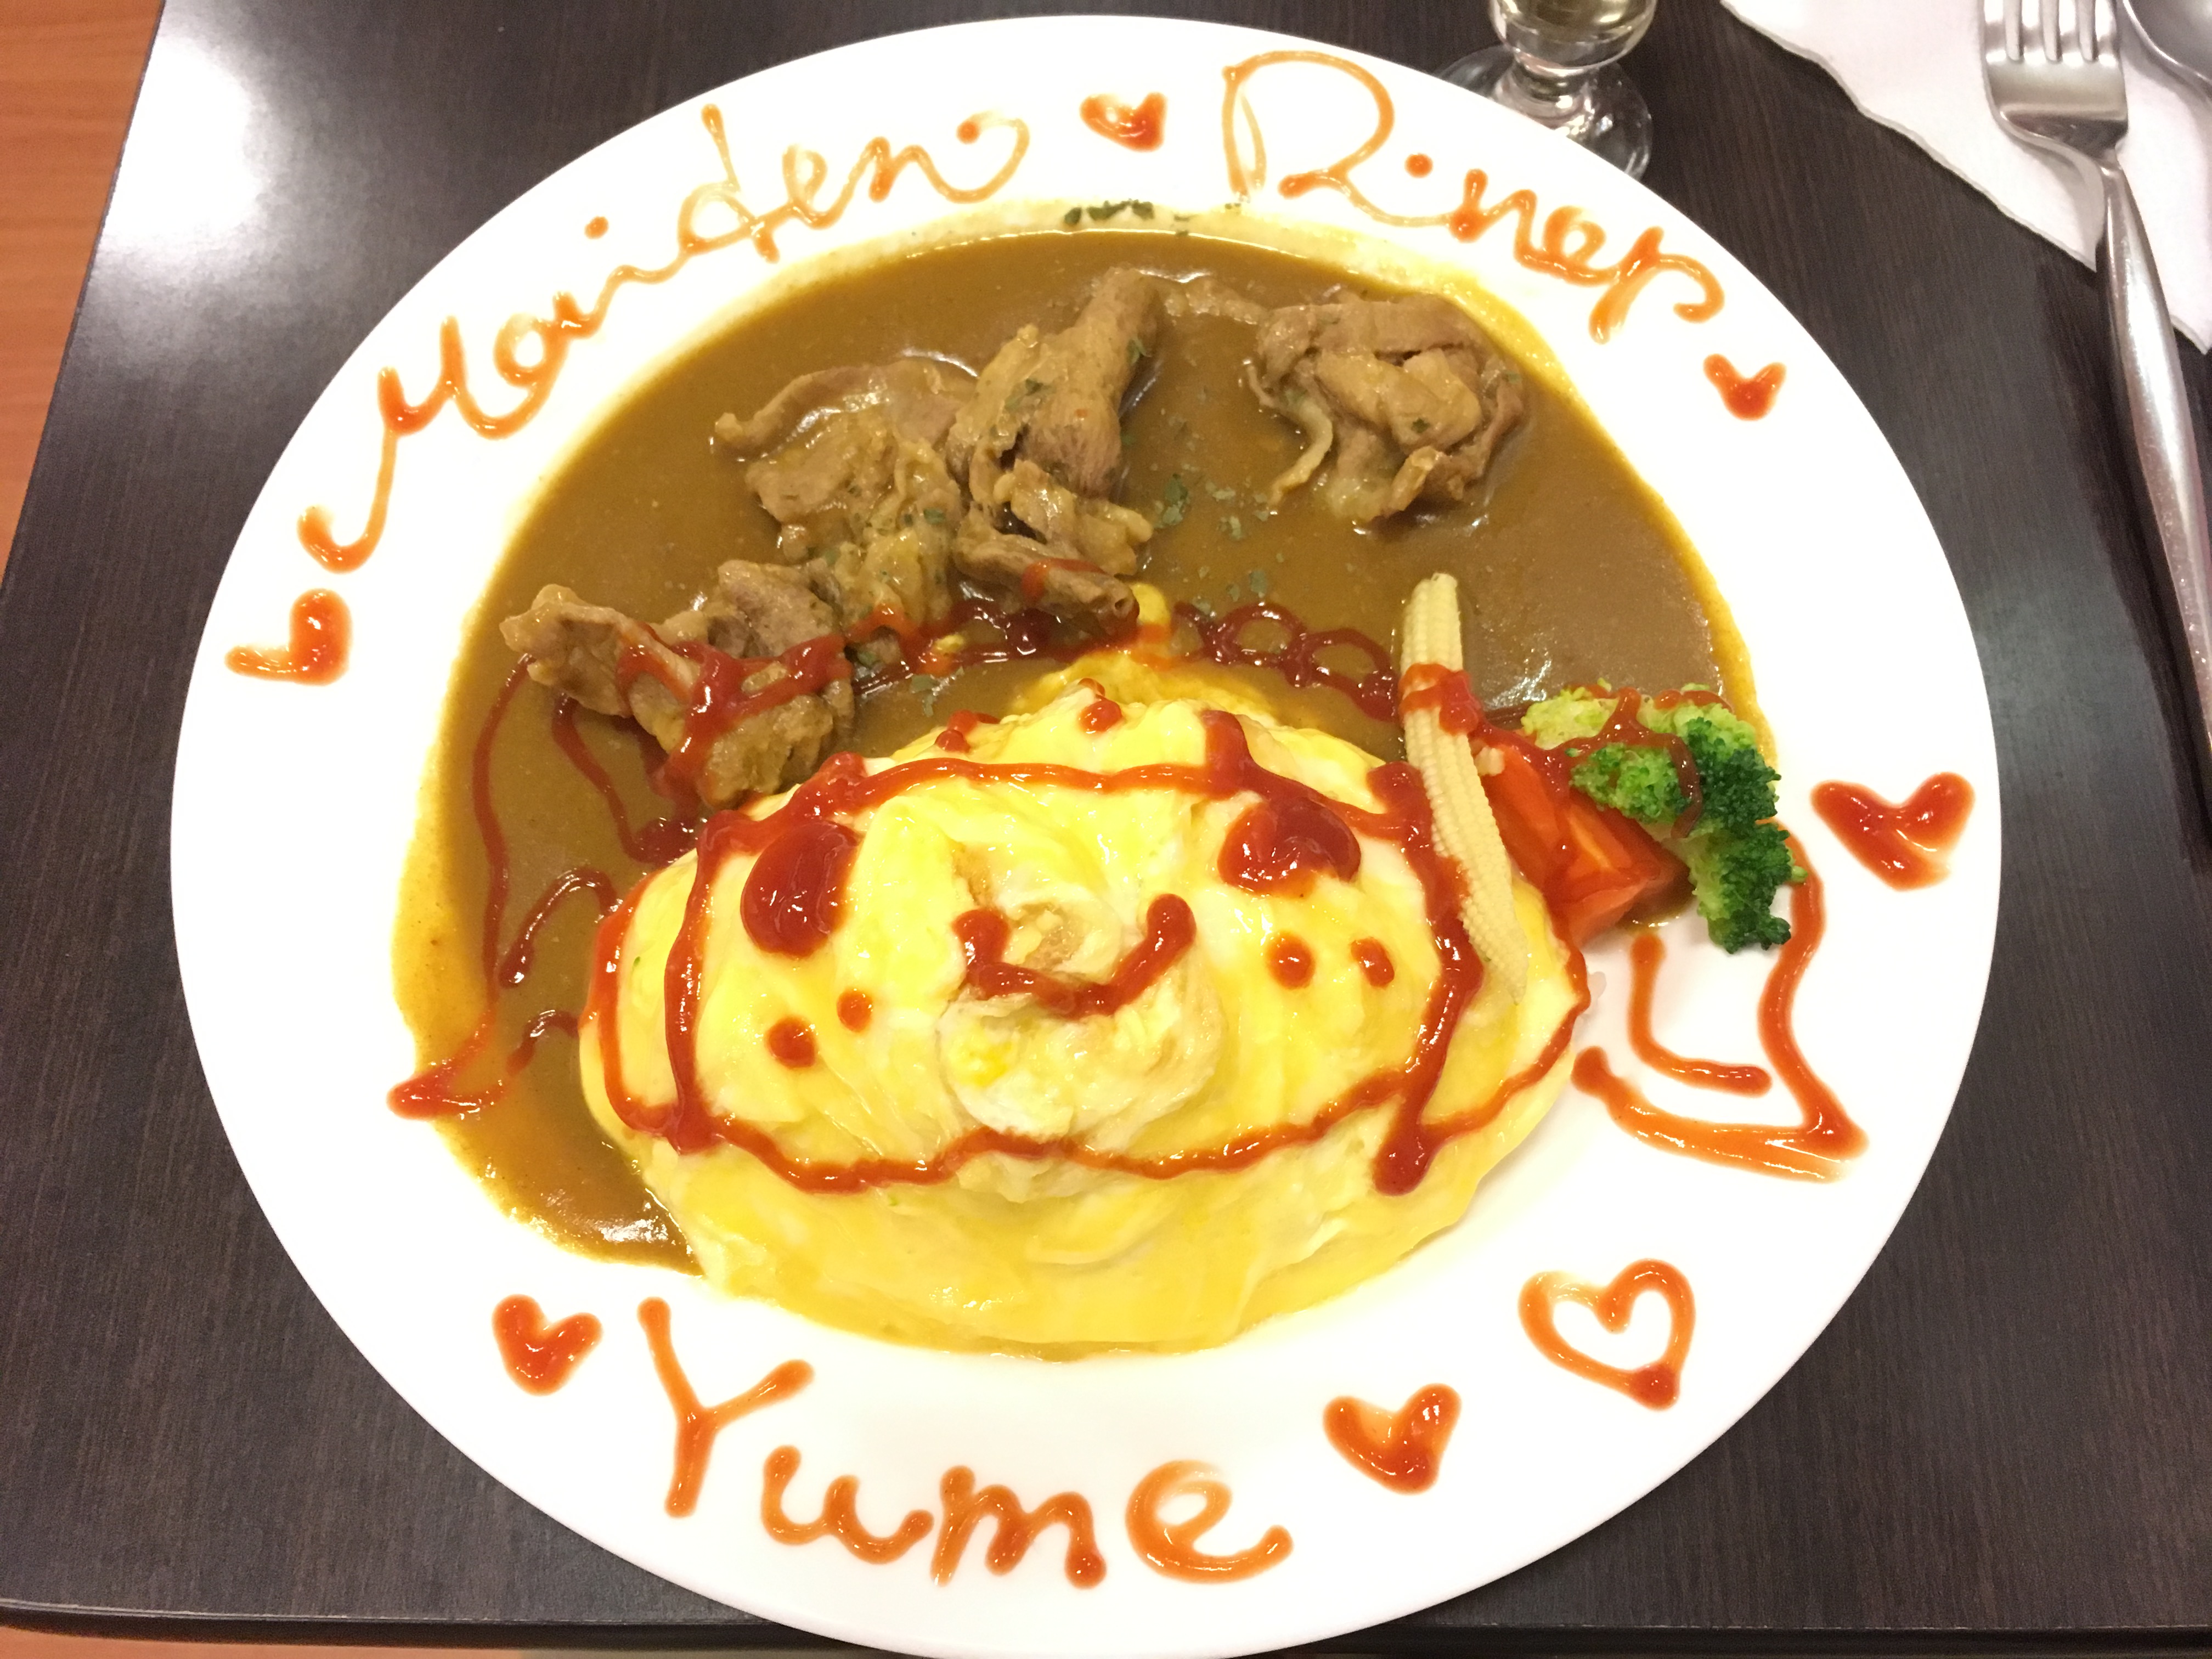 Maiden Diner
Yume